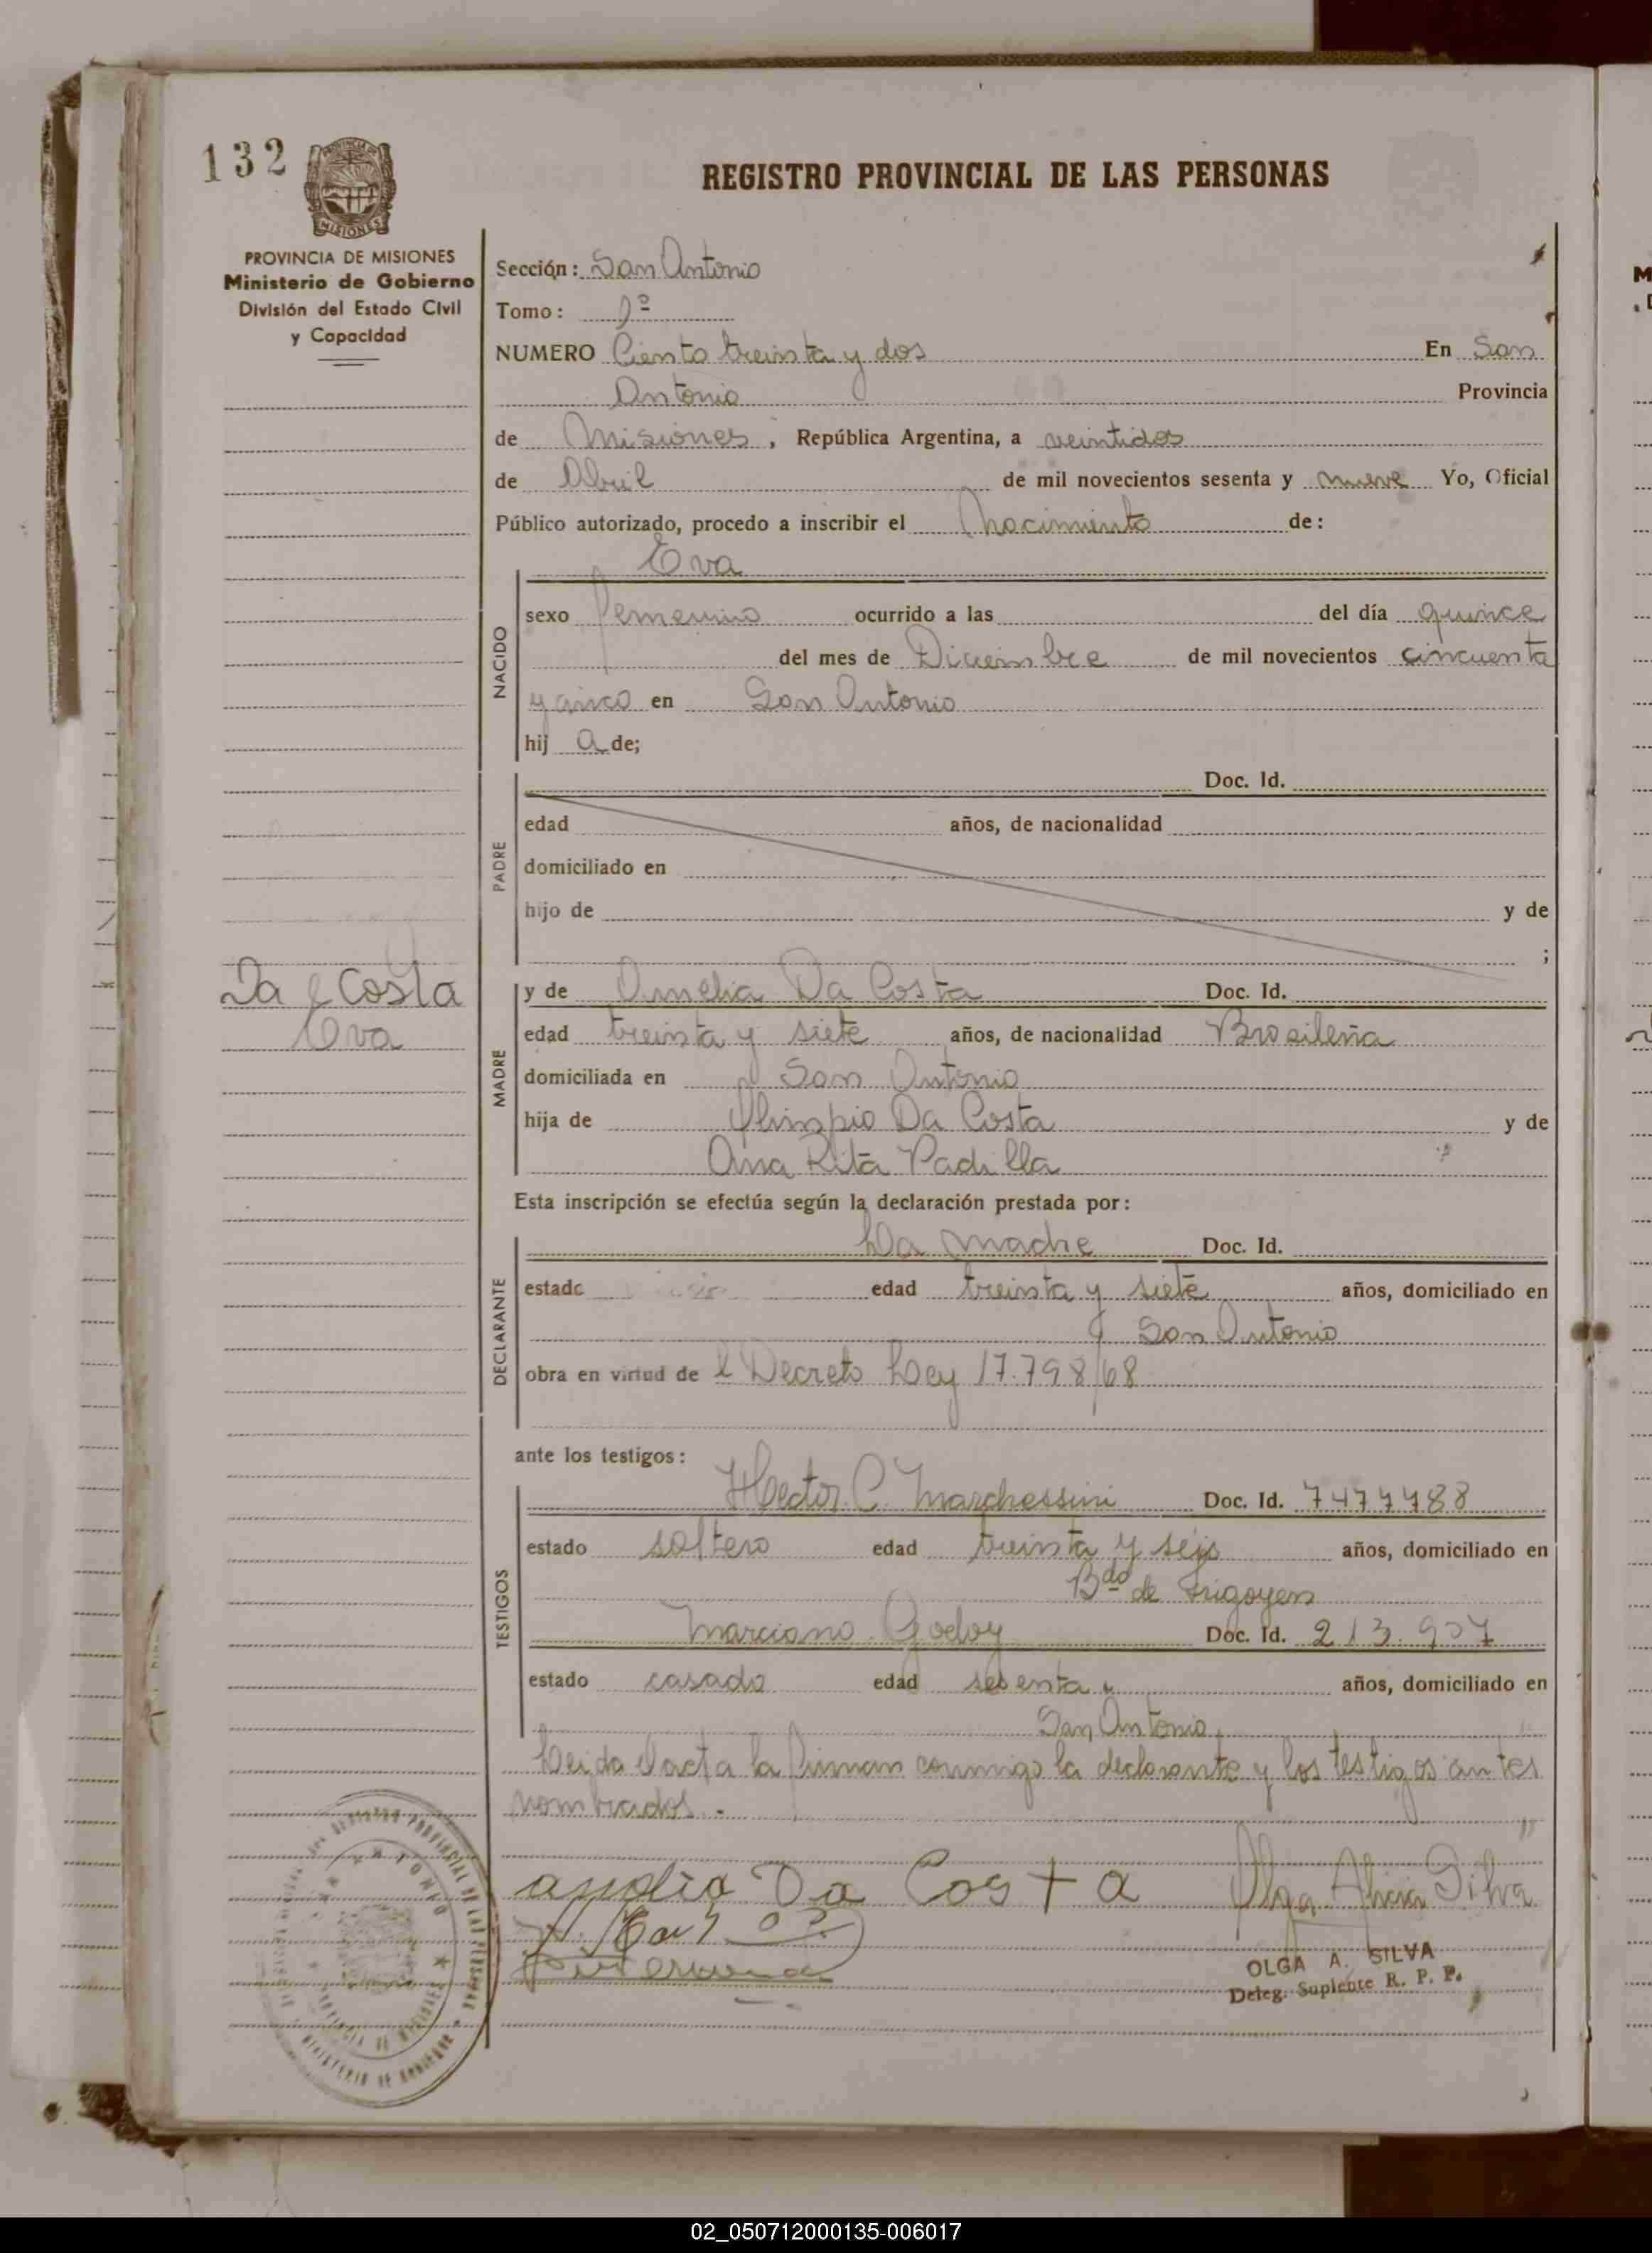 132
REGISTRO PROVINCIAL DE LAS PERSONAS
PROVINCIA DE MISIONES
Ministerio de Gobierno
División del Estado Civil
y Capacidad
Sección: San Antonio
Tomo: 1º
NUMERO Ciento treinta y dos En San
Antonio Provincia
de Misiones, República Argentina, a veintidos
de Abril de mil novecientos sesenta y nueve Yo, Oficial
Público autorizado, procedo a inscribir el Nacimiento de:
Eva
NACIDO
sexo femenino ocurrido a las del día quince
del mes de Diciembre de mil novecientos cincuenta
y cinco en San Antonio
hij a de;
PADRE
Doc. Id.
edad años, de nacionalidad
domiciliado en
hijo de y de
;
Da Costa
Eva
MADRE
y de Amelia Da Costa Doc. Id.
edad treinta y siete años, de nacionalidad Brasileña
domiciliada en San Antonio
hija de Olimpio Da Costa y de
Ana Rita Padilla
Esta inscripción se efectúa según la declaración prestada por:
DECLARANTE
La madre Doc. Id.
estado edad treinta y siete años, domiciliado en
San Antonio
obra en virtud de l Decreto Ley 17.798/68
ante los testigos:
TESTIGOS
Hector C. Marchessini Doc. Id. 7477488
estado soltero edad treinta y seis años, domiciliado en
Bdo de Irigoyen
Marciano Godoy Doc. Id. 213.907
estado casado edad sesenta años, domiciliado en
San Antonio.
Leida el acta la firman conmigo la declarante y los testigos antes
nombrados.
Da Costa Olga Alicia Silva
OLGA A. SILVA
Deleg. Suplente R. P. P.
02_050712000135-006017